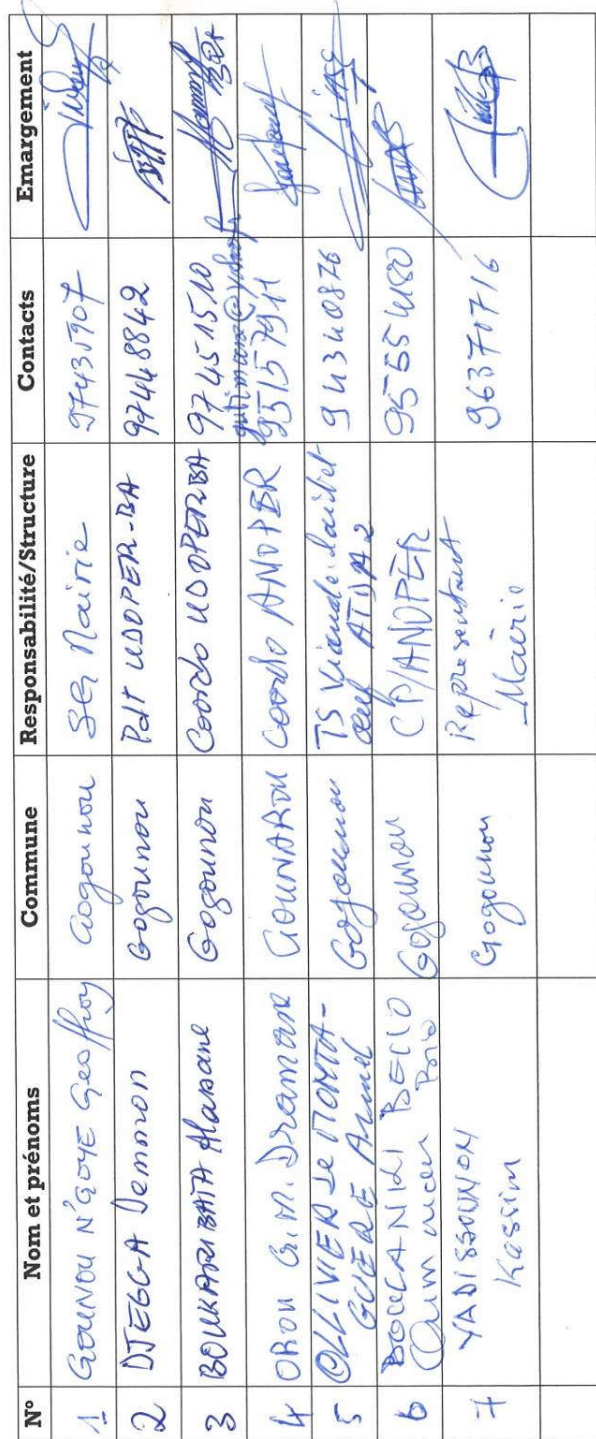 N° Nom et prénoms Commune Responsabilité/Structure Contacts Emargement
1 GOUNOU N'GOYE Geoffroy Gogounou SG Mairie 97435907
2 DJEGGA Demmon Gogounou Pdt UDOPER-BA 97448842
3 BOUKARI BATA Alassane Gogounou Coordo UDOPER BA 97451510
4 OROU G.M. Dramane GOUNAROU Coordo ANOPER 95157911
5 OLLIVIER de MONTA- Gogounou TS Viande lait et
GUERE Armel oeuf ATDA2 94340876
6 BOUCANIRI BELLO Gogounou CP/ANOPER 95554180
7 YADISSOUNON Gogounou Representant 96370716
Kassim Mairie